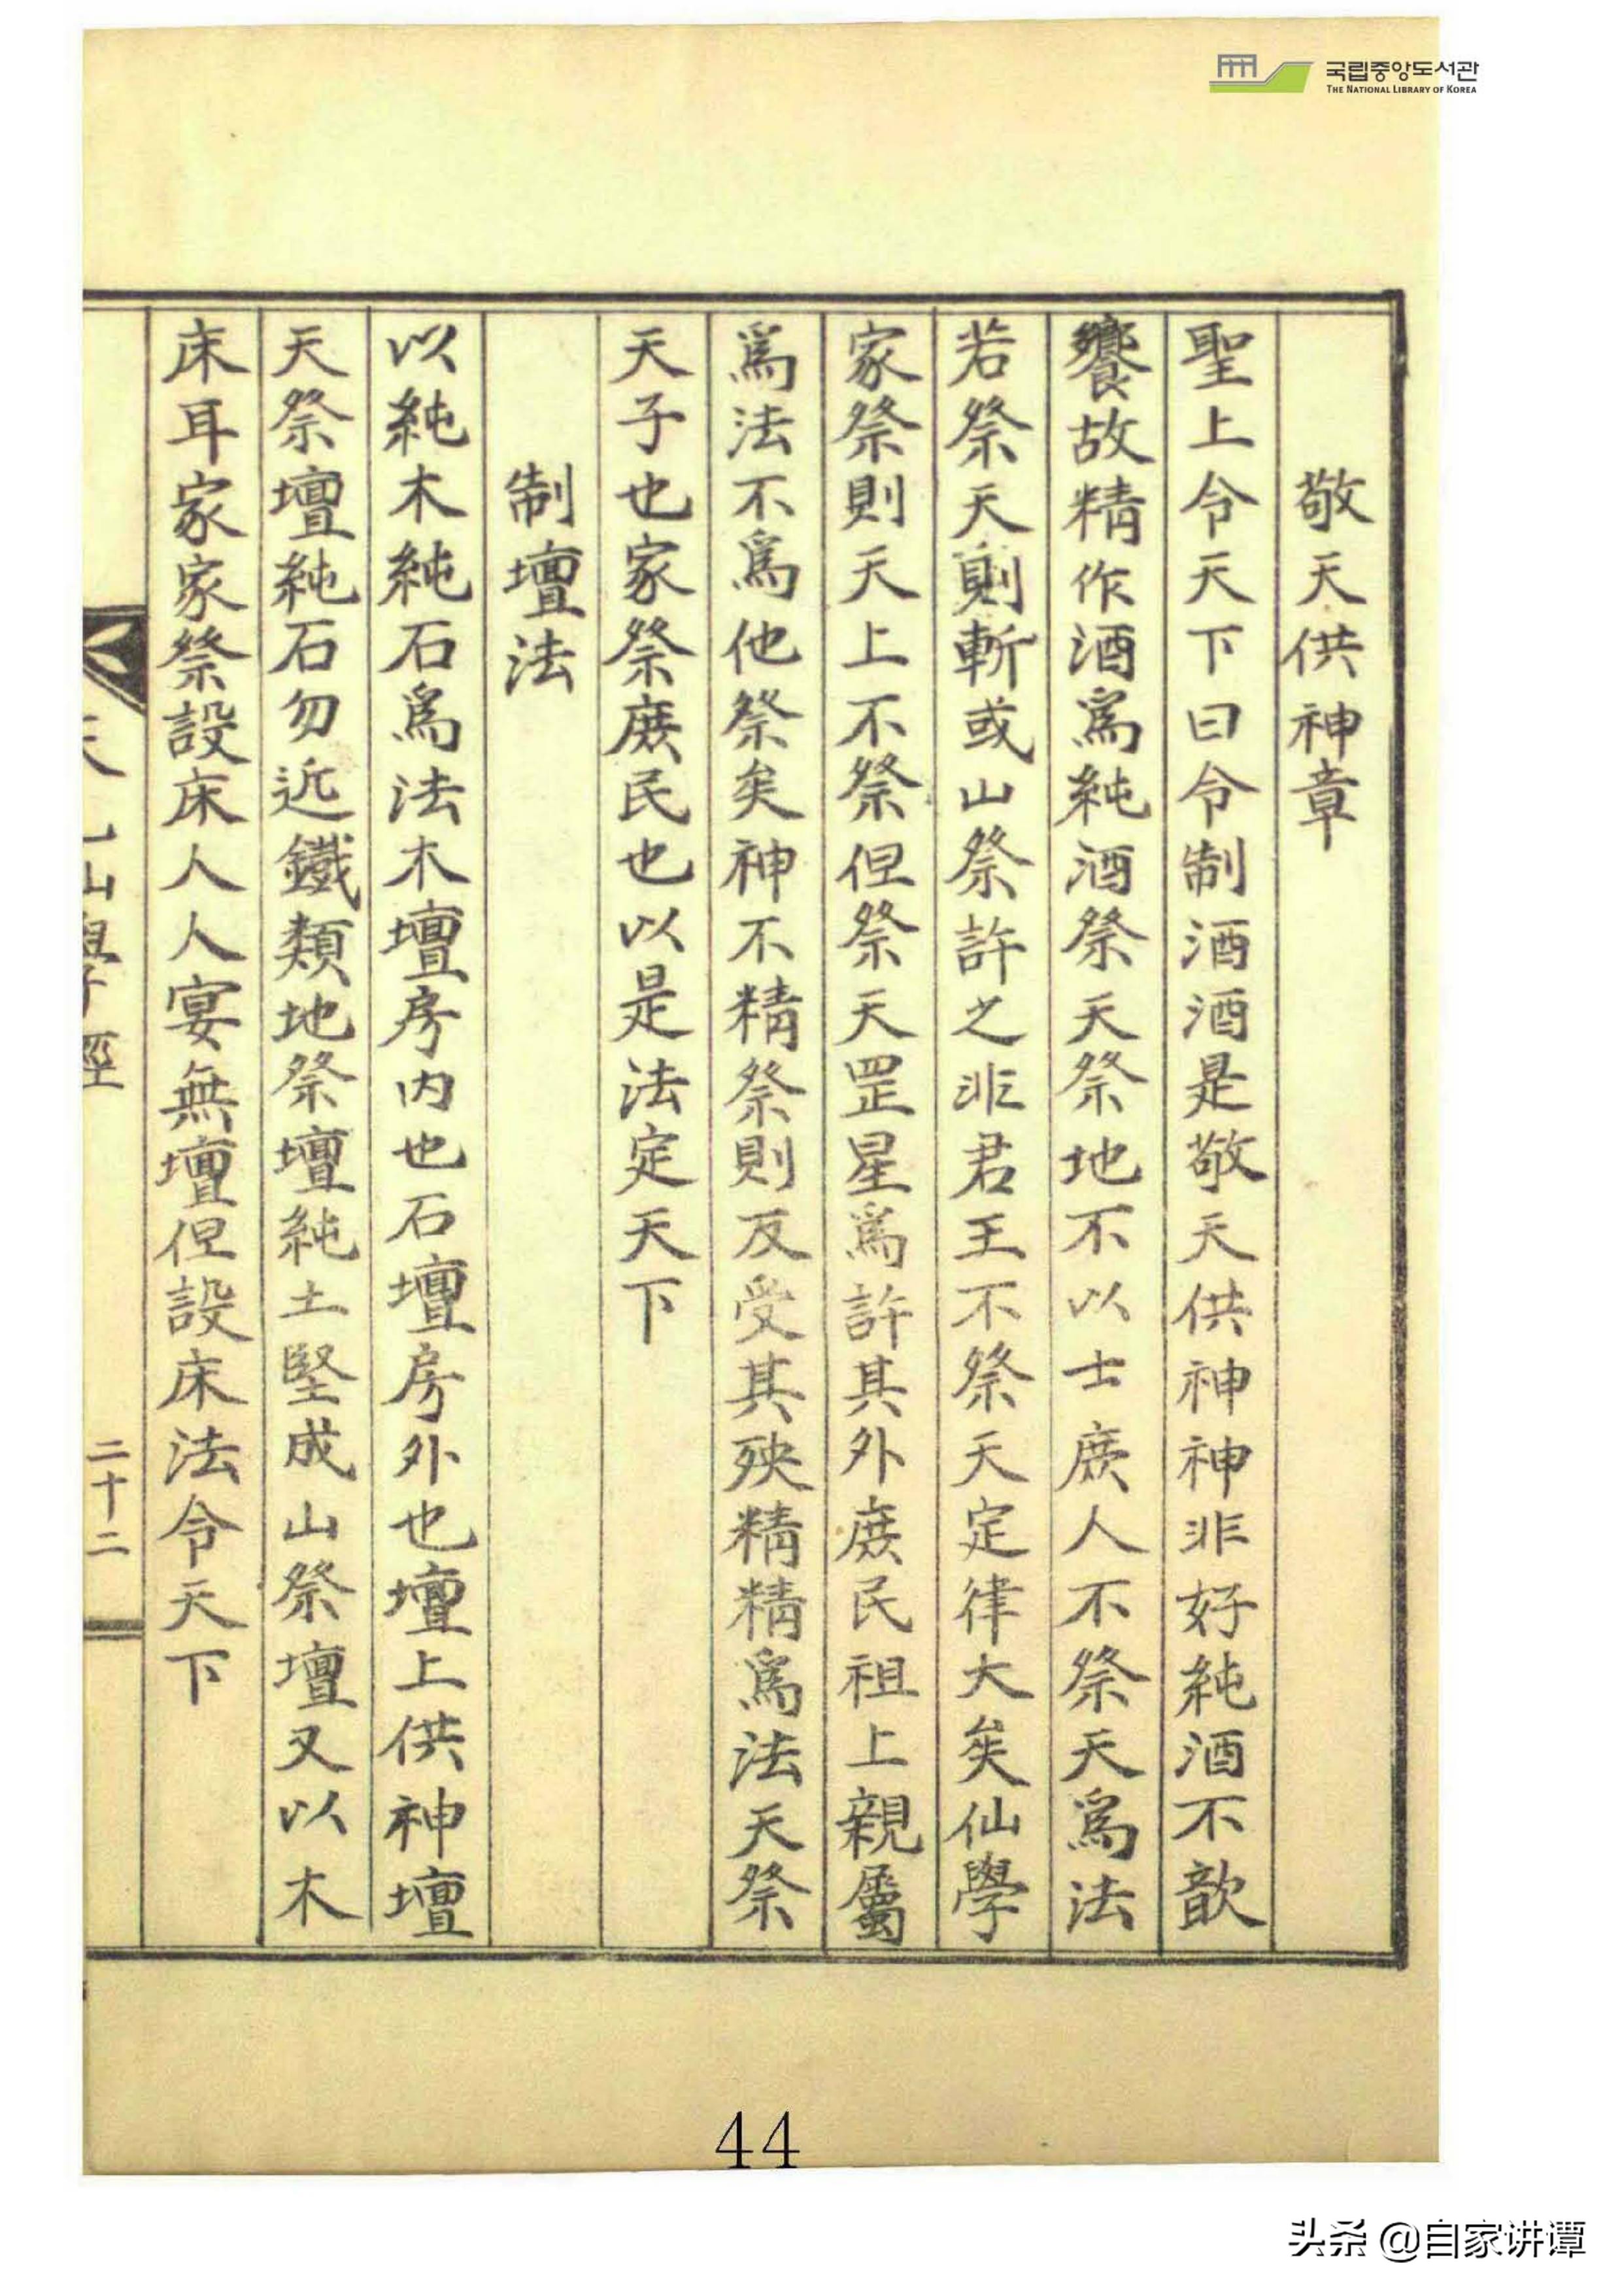 국립중앙도서관
THE NATIONAL LIBRARY OF KOREA
敬天供神章
聖上令天下曰令制酒酒是敬天供神神非好純酒不歆
饗故精作酒爲純酒祭天祭地不以士庶人不祭天爲法
若祭天則斬或山祭許之非君王不祭天天定律大矣仙學
家祭則天上不祭但祭天罡星爲許其外庶民祖上親屬
爲法不爲他祭矣神不精祭則反受其殃精精爲法天祭
天子也家祭庶民也以是法定天下
制壇法
以純木純石爲法木壇房內也石壇房外也壇上供神壇
天祭壇純石勿近鐵類地祭壇純土堅成山祭壇又以木
床耳家家祭設床人人宴無壇但設床法令天下
二十二
44
头条 @自家讲谭